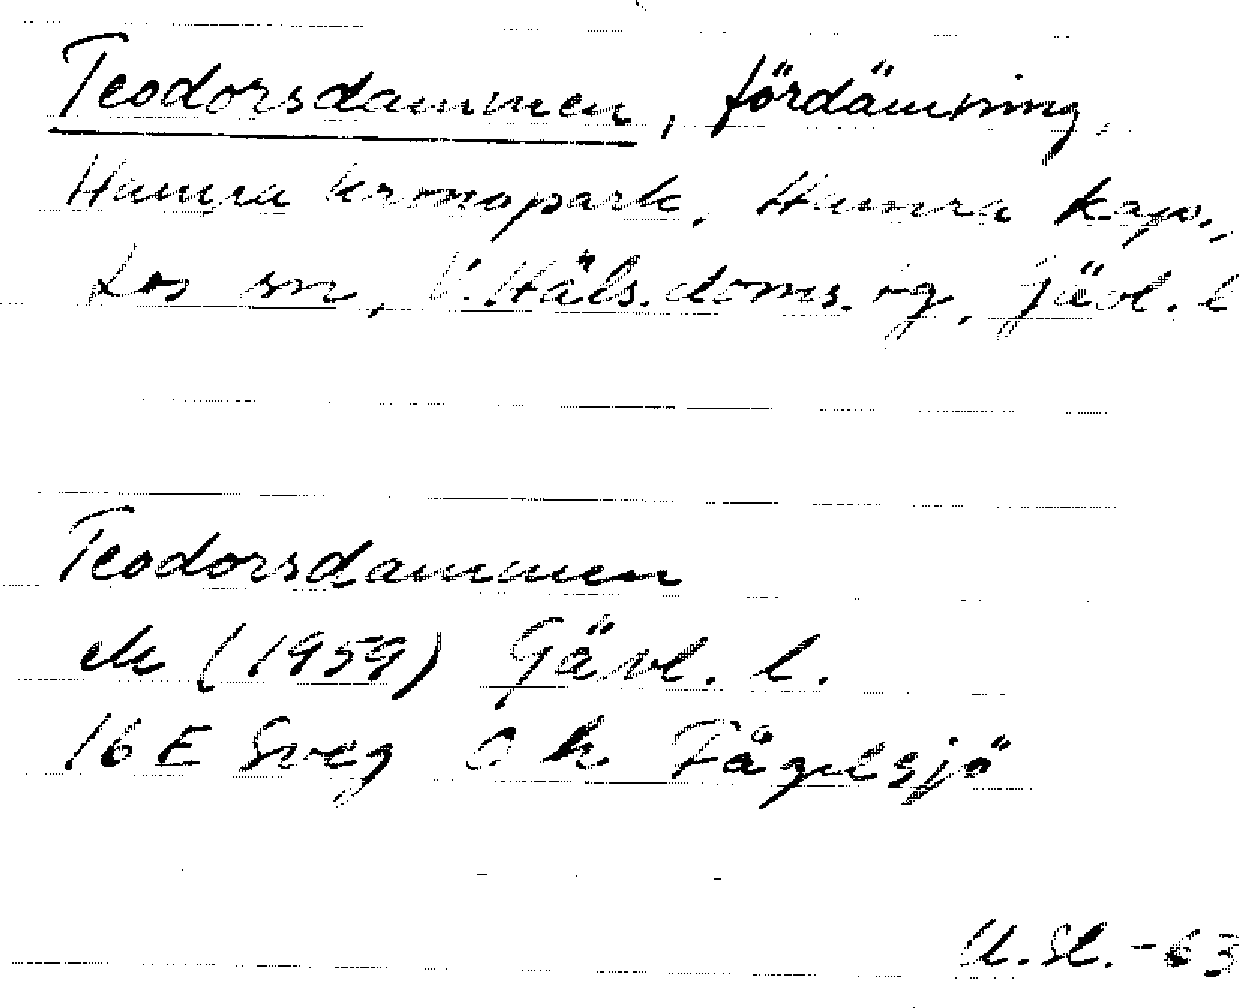 Teodorsdammen, fördämning,
Hamra kronopark, Hamra kaps.,
Los sn, V. Häls. doms.:ag, Gävl. l
Teodorsdammen
ek (1959) Gävl. l.
16 E Sveg Ö k Fågelsjö
U. Sl. -63